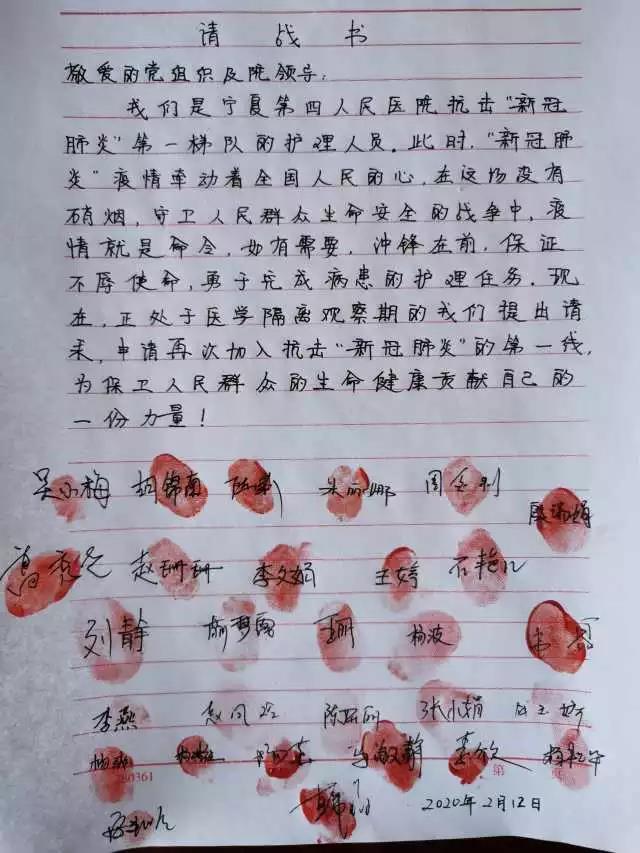 请战书
敬爱的党组织及院领导:
我们是宁夏第四人民医院抗击“新冠
肺炎”第一梯队的护理人员。此时,“新冠肺
炎”疫情牵动着全国人民的心,在这场没有
硝烟,守卫人民群众生命安全的战争中,疫
情就是命令,如有需要,冲锋在前,保证
不辱使命,勇于完成病患的护理任务。现
在,正处于医学隔离观察期的我们提出请
求,申请再次加入抗击“新冠肺炎”的第一线,
为保卫人民群众的生命健康贡献自己的
一份力量!
吴小梅 胡锦南 朱丽娜
赵珊珊 李文娟 王婷 石艳
刘静 王珊 杨波
李燕 赵凤 陈 丽 张小娟
马淑静
2020年2月12日
第 页